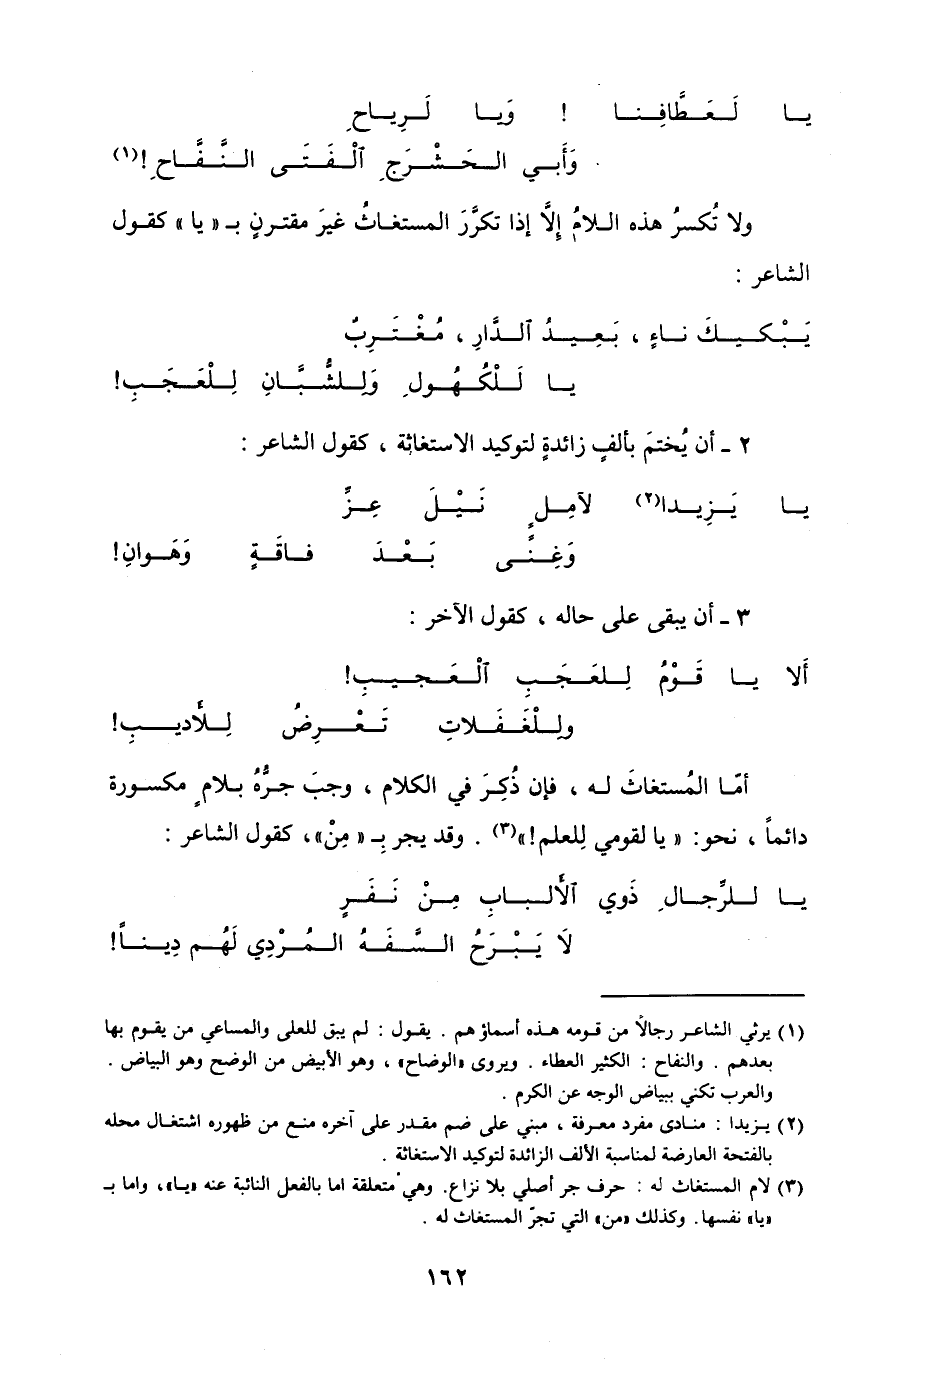 يا لَعَطَّافِنا ! وَيا لَرِياحِ
وَأَبي الحَشْرَجِ ٱلْفَتَى النَّفَّاحِ!(١)
ولا تُكسرُ هذه اللامُ إِلَّا إذا تكرَّرَ المستغاثُ غيرَ مقترنٍ بـ « يا » كقول
الشاعر :
يَبْكيكَ ناءٍ ، بَعيدُ ٱلدَّارِ ، مُغْتَرِبٌ
يا لَلْكُهُولِ وَلِلشُّبَّانِ لِلْعَجَبِ!
٢ ـ أن يُختمَ بألفٍ زائدةٍ لتوكيد الاستغاثة ، كقول الشاعر :
يا يَزِيدا(٢) لآمِلٍ نَيْلَ عِزٍّ
وَغِنًى بَعْدَ فاقَةٍ وَهَوانِ!
٣ ـ أن يبقى على حاله ، كقول الآخر :
أَلا يا قَوْمُ لِلعَجَبِ ٱلْعَجيبِ!
ولِلْغَفَلاتِ تَعْرِضُ لِلأَديبِ!
أمّا المُستغاثَ له ، فإن ذُكِرَ في الكلام ، وجبَ جرُّهُ بلامٍ مكسورة
دائماً ، نحو: « يا لقومي لِلعلم!»(٣) . وقد يجر بِـ « مِنْ»، كقول الشاعر :
يا لَلرِّجالِ ذَوي ٱلأَلبابِ مِنْ نَفَرٍ
لَا يَبْرَحُ السَّفَهُ المُرْدِي لَهُم دِيناً!
(١) يرثي الشاعر رجالاً من قومه هذه أسماؤهم . يقول : لم يبق للعلى والمساعي من يقوم بها
بعدهم . والنفاح : الكثير العطاء . ويروى «الوضاح» ، وهو الأبيض من الوضح وهو البياض .
والعرب تكني ببياض الوجه عن الكرم .
(٢) يزيدا : منادى مفرد معرفة ، مبني على ضم مقدر على آخره منع من ظهوره اشتغال محله
بالفتحة العارضة لمناسبة الألف الزائدة لتوكيد الاستغاثة .
(٣) لام المستغاث له : حرف جر أصلي بلا نزاع. وهي متعلقة اما بالفعل النائبة عنه «يا»، واما بـ
«يا» نفسها. وكذلك «من» التي تجرّ المستغاث له .
١٦٢